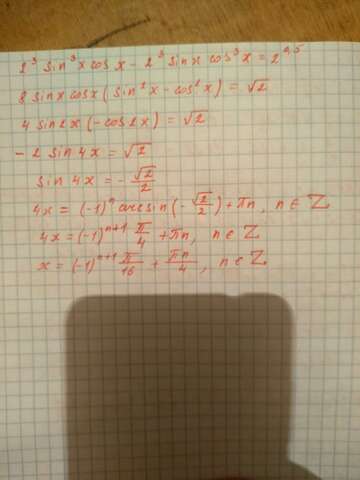 2³ sin³x cos x - 2³ sin x cos³x = 2^0,5
8 sin x cos x (sin²x - cos²x) = √2
4 sin 2x (-cos 2x) = √2
- 2 sin 4x = √2
sin 4x = - √2/2
4x = (-1)ⁿ arcsin (- √2/2) + πn, n ∈ ℤ
4x = (-1)ⁿ⁺¹ π/4 + πn, n ∈ ℤ
x = (-1)ⁿ⁺¹ π/16 + πn/4, n ∈ ℤ